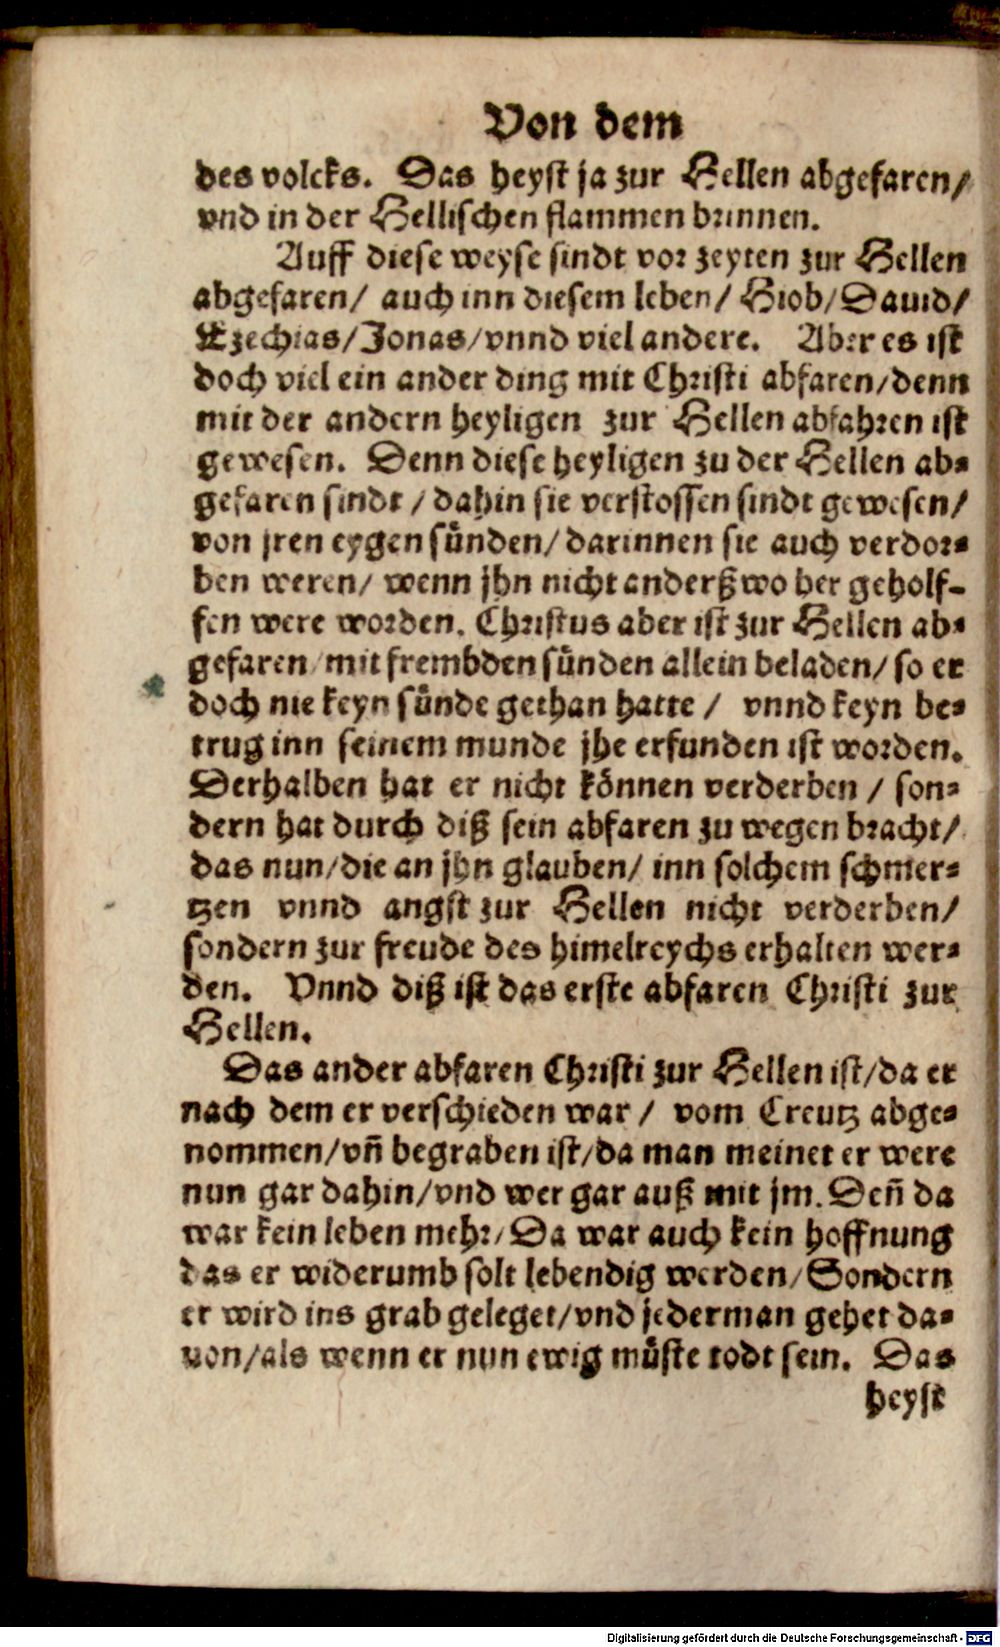 Von dem
des volcks. Das heyst ja zur Hellen abgefaren/
vnd in der Hellischen flammen brinnen.
Auff diese weyse sindt vor zeyten zur Hellen
abgefaren/ auch inn diesem leben/ Hiob/ Dauid/
Ezechias/ Jonas/ vnnd viel andere. Aber es ist
doch viel ein ander ding mit Christi abfaren/ denn
mit der andern heyligen zur Hellen abfahren ist
gewesen. Denn diese heyligen zu der Hellen ab-
gefaren sindt / dahin sie verstossen sindt gewesen/
von jren eygen sünden/ darinnen sie auch verdor-
ben weren/ wenn jhn nicht anderßwo her geholf-
fen were worden. Christus aber ist zur Hellen ab-
gefaren/ mit frembden sünden allein beladen/ so er
doch nie keyn sünde gethan hatte / vnnd keyn be-
trug inn seinem munde jhe erfunden ist worden.
Derhalben hat er nicht können verderben / son-
dern hat durch diß sein abfaren zu wegen bracht/
das nun/ die an jhn glauben/ inn solchem schmer-
tzen vnnd angst zur Hellen nicht verderben/
sondern zur freude des himelreychs erhalten wer-
den. Vnnd diß ist das erste abfaren Christi zur
Hellen.
Das ander abfaren Christi zur Hellen ist/ da er
nach dem er verschieden war / vom Creutz abge-
nommen/ vñ begraben ist/ da man meinet er were
nun gar dahin/ vnd wer gar auß mit jm. Deñ da
war kein leben mehr/ Da war auch kein hoffnung
das er widerumb solt lebendig werden/ Sondern
er wird ins grab geleget/ vnd jederman gehet da-
uon/ als wenn er nun ewig müste todt sein. Das
heyst
Digitalisierung gefördert durch die Deutsche Forschungsgemeinschaft - DFG